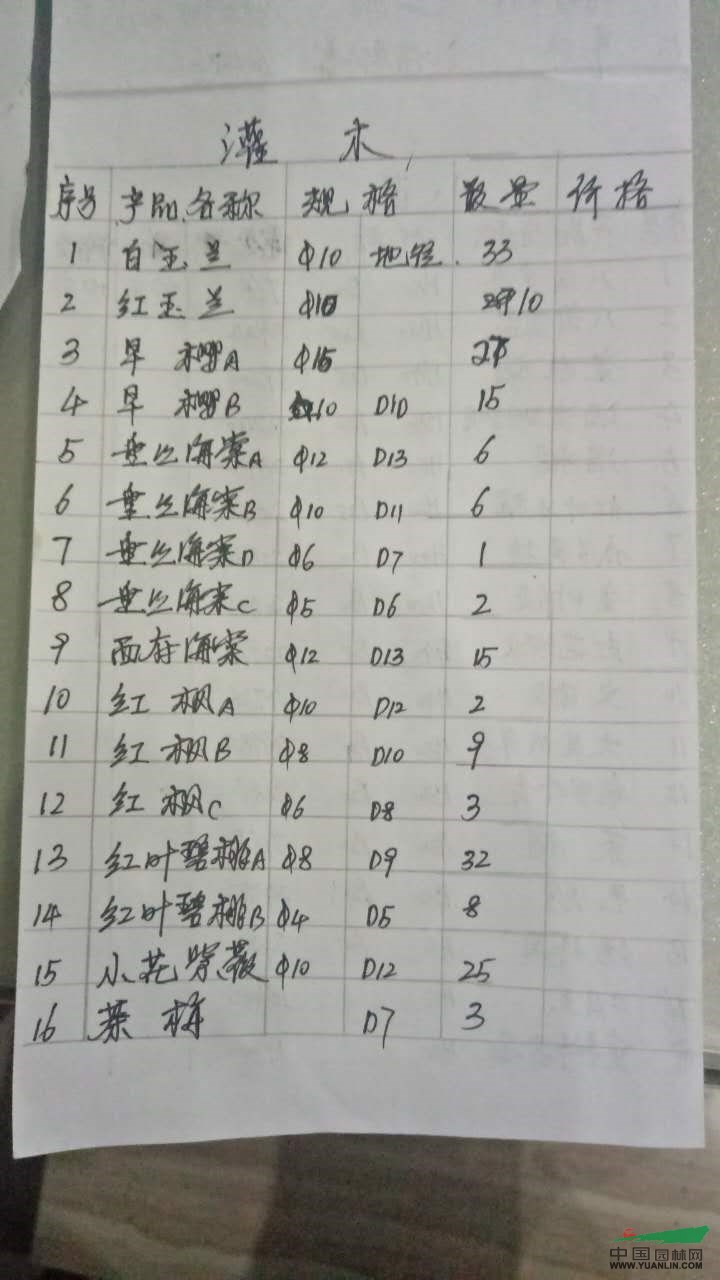 灌 木
序号 产品名称 规格 数量 价格
1 白玉兰 Φ10 地径 33
2 红玉兰 Φ10 10
3 早樱A Φ15
4 早樱B Φ10 D10 15
5 垂丝海棠A Φ12 D13 6
6 垂丝海棠B Φ10 D11 6
7 垂丝海棠D Φ6 D7 1
8 垂丝海棠C Φ5 D6 2
9 西府海棠 Φ12 D13 15
10 红枫A Φ10 D12 2
11 红枫B Φ8 D10 9
12 红枫C Φ6 D8 3
13 红叶碧桃A Φ8 D9 32
14 红叶碧桃B Φ4 D5 8
15 小花紫薇 Φ10 D12 25
16 D7 3
中国园林网
WWW.YUANLIN.COM